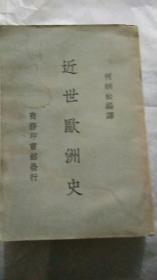 何炳松編譯
近世歐洲史
商務印書館發行